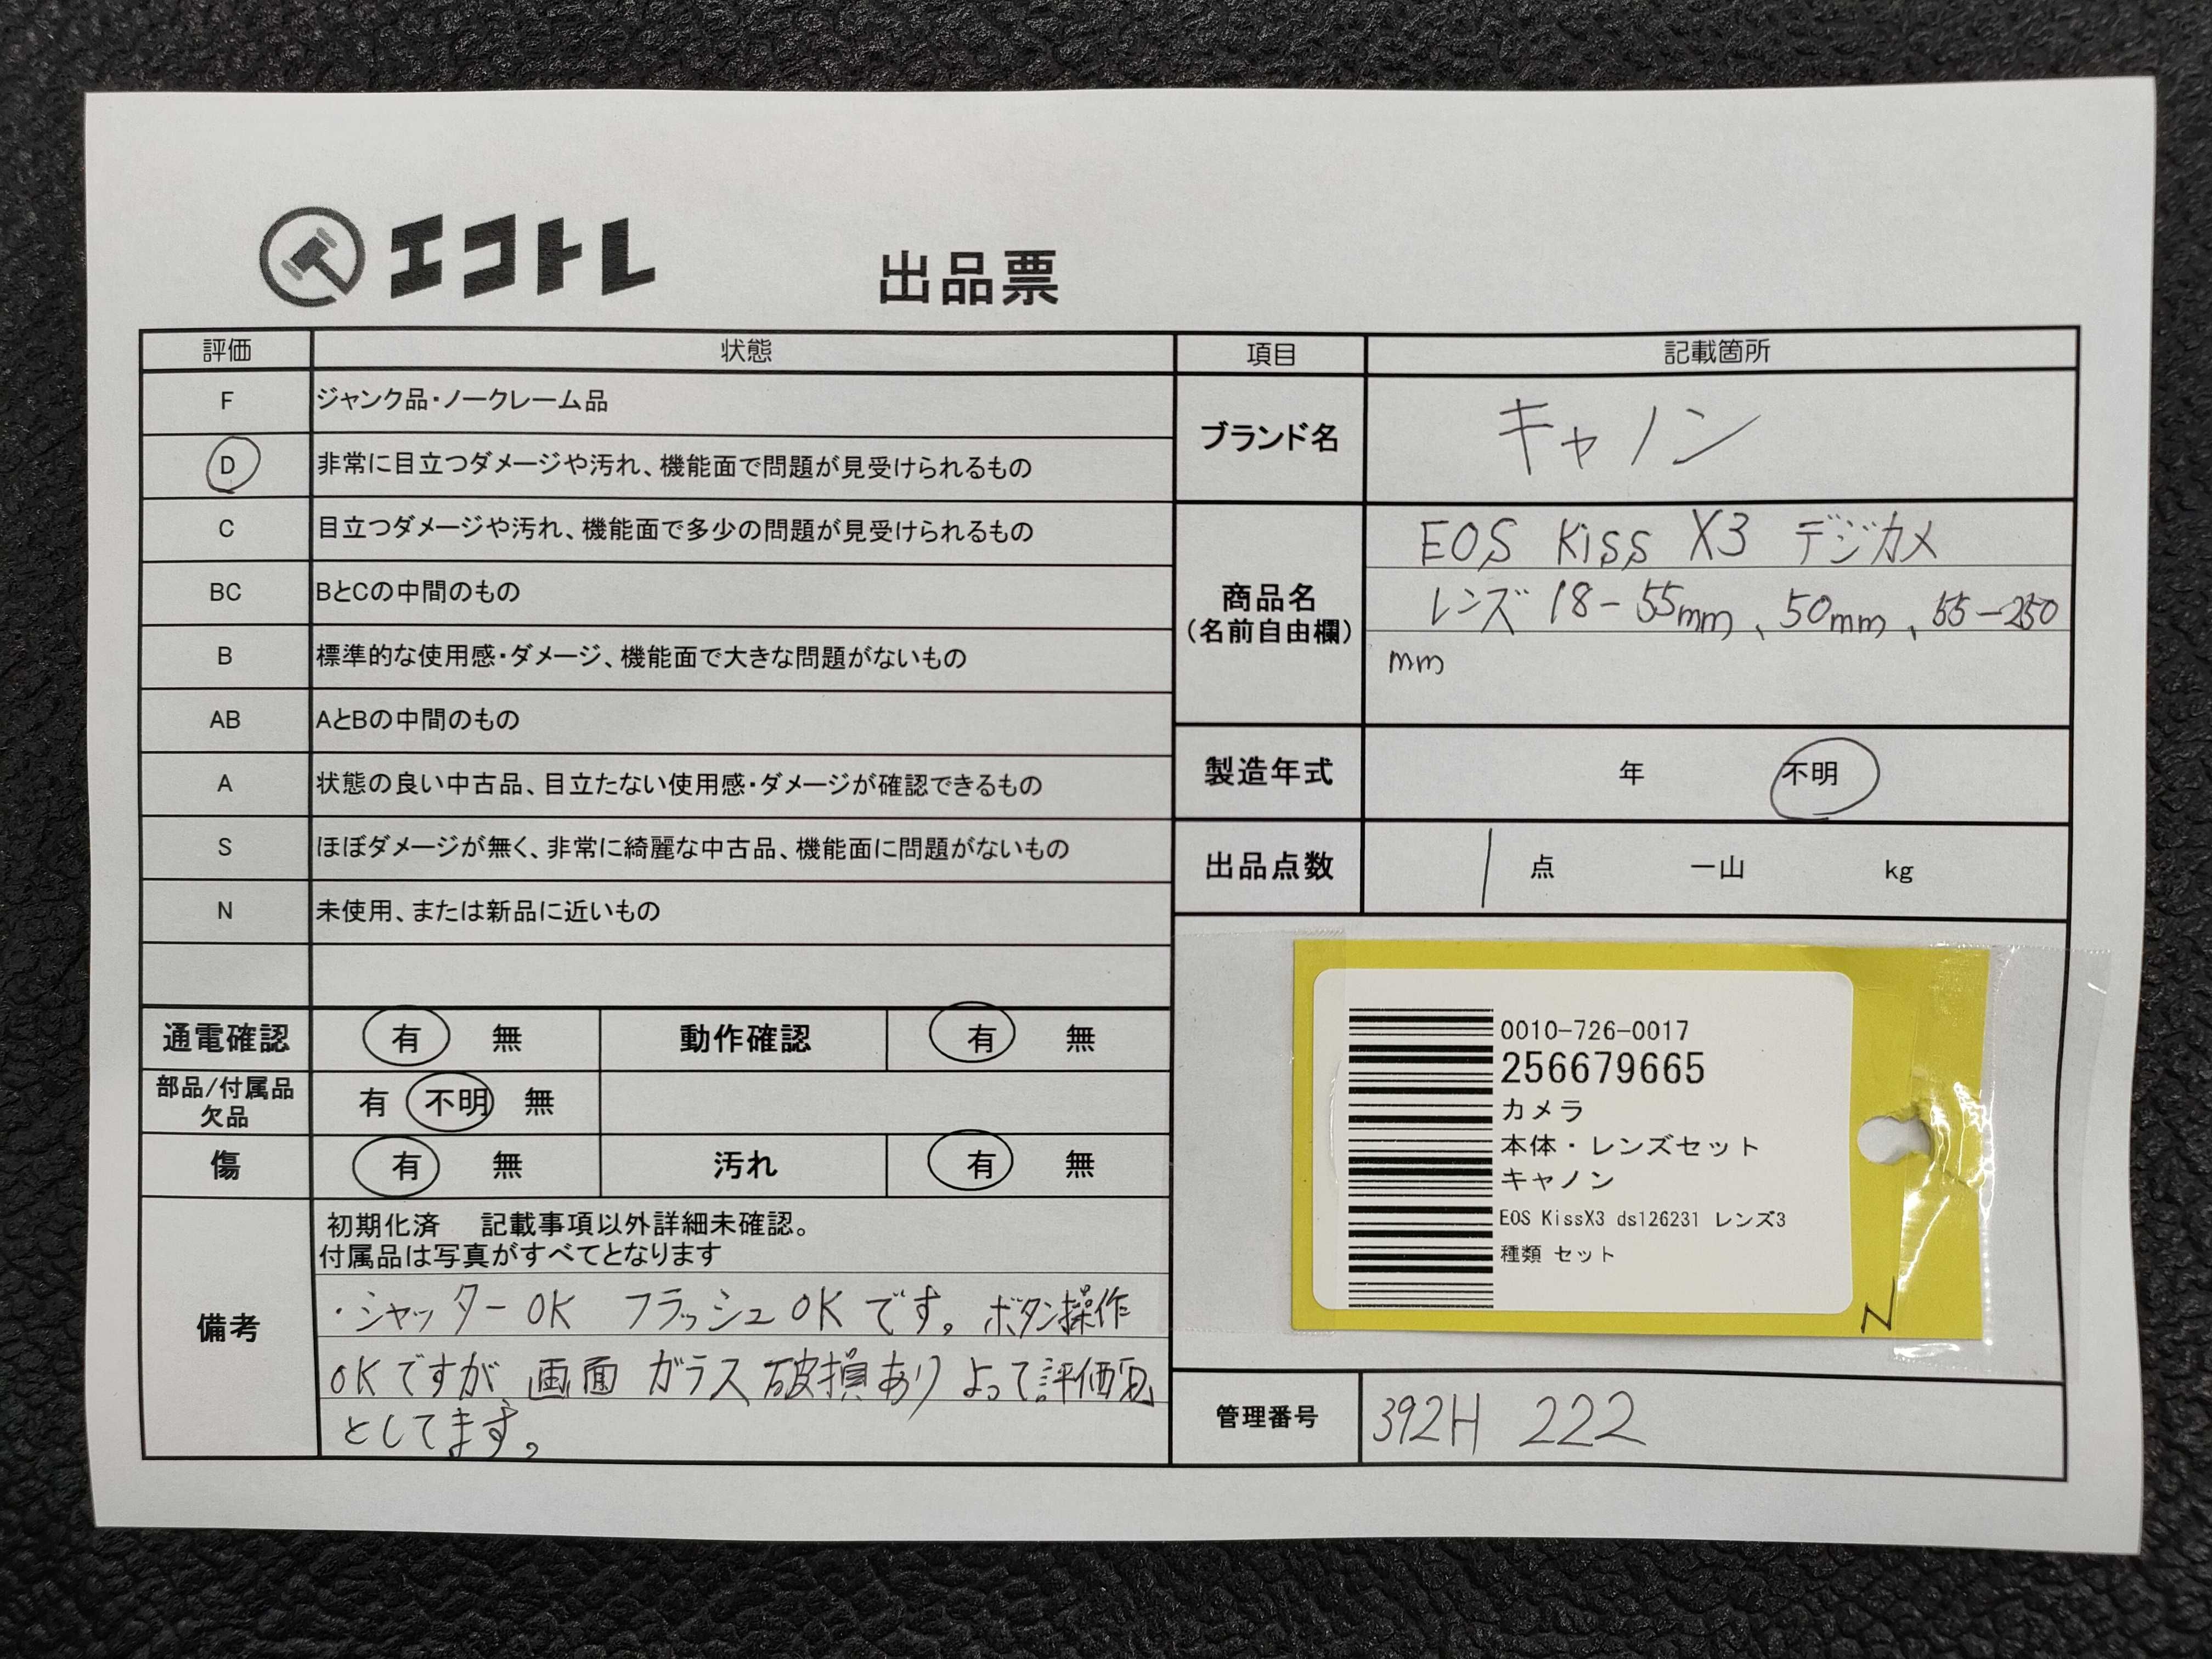 エコトレ
出品票
評価 状態
F ジャンク品・ノークレーム品
D 非常に目立つダメージや汚れ、機能面で問題が見受けられるもの
C 目立つダメージや汚れ、機能面で多少の問題が見受けられるもの
BC BとCの中間のもの
B 標準的な使用感・ダメージ、機能面で大きな問題がないもの
AB AとBの中間のもの
A 状態の良い中古品、目立たない使用感・ダメージが確認できるもの
S ほぼダメージが無く、非常に綺麗な中古品、機能面に問題がないもの
N 未使用、または新品に近いもの
通電確認 有 無 動作確認 有 無
部品/付属品
欠品
有 不明 無
傷 有 無 汚れ 有 無
備考
初期化済 記載事項以外詳細未確認。
付属品は写真がすべてとなります
・シャッターOK フラッシュOKです。ボタン操作
OKですが 画面 ガラス破損あり よって評価
としてます。
項目 記載箇所
ブランド名 キャノン
商品名
(名前自由欄)
EOS Kiss X3 デジカメ
レンズ 18-55mm、50mm、55-250
mm
製造年式 年 不明
出品点数 1 点 一山 kg
0010-726-0017
256679665
カメラ
本体・レンズセット
キャノン
EOS KissX3 ds126231 レンズ3
種類 セット
N
管理番号 392H 222